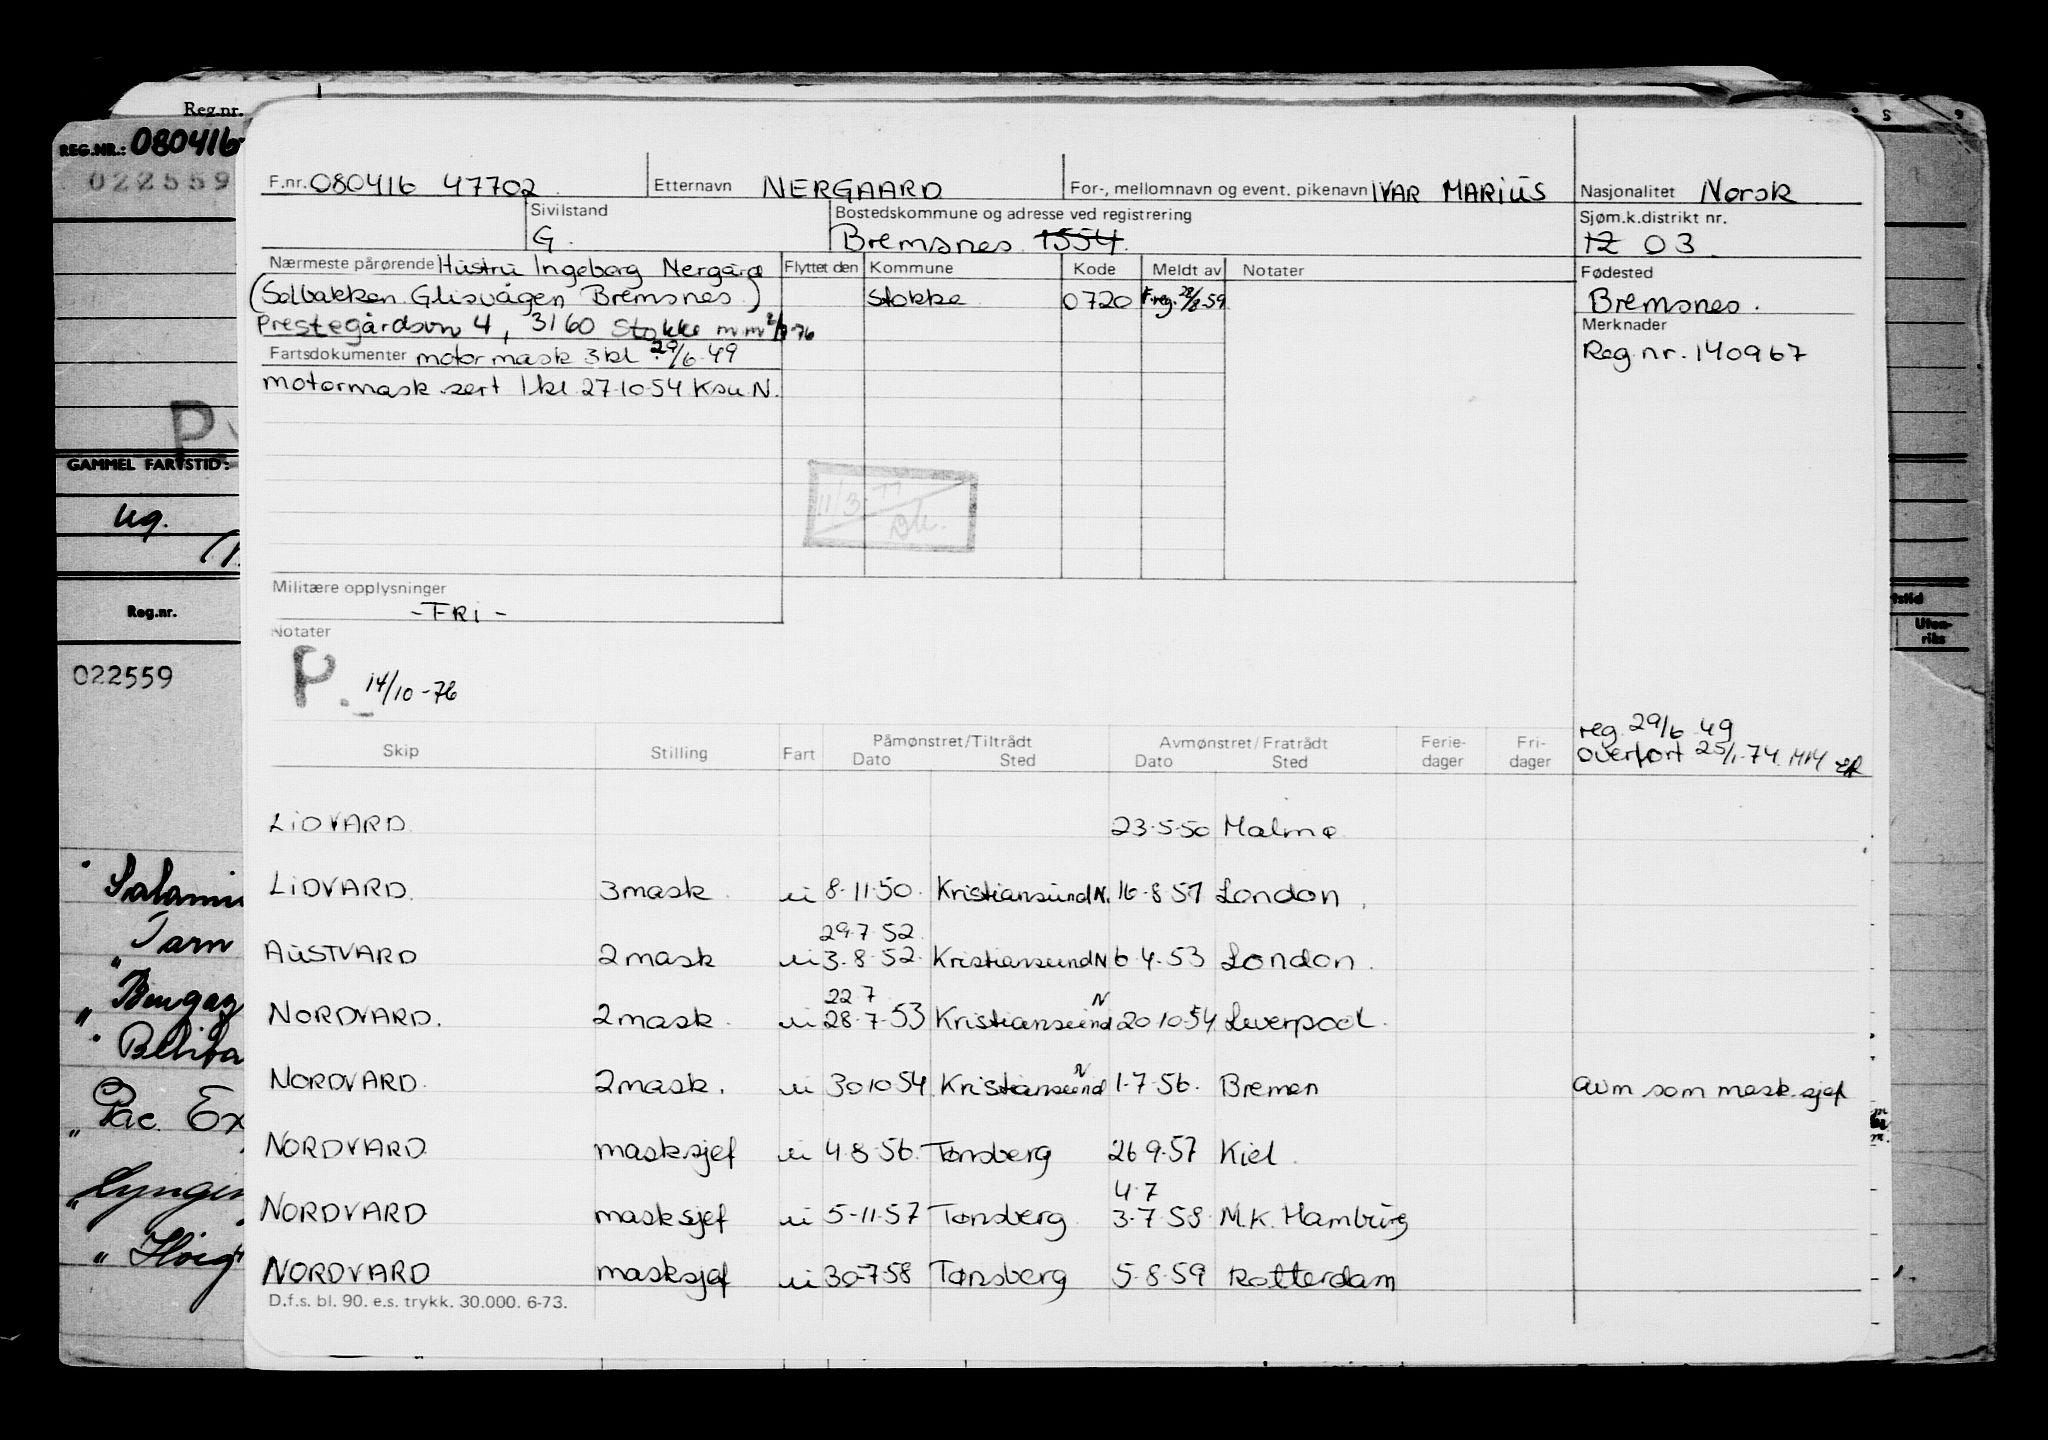 Reg.nr.
REG.NR.: 080416
022559
GAMMEL FARTSTID:
ug.
Reg.nr.
022559
Tarn
Pac. Ex
F.nr. 080416 47702 Etternavn NERGAARD For-, mellomnavn og event. pikenavn IVAR MARIUS Nasjonalitet Norsk
Sivilstand G. Bostedskommune og adresse ved registrering Bremsnes 1554. Sjøm.k.distrikt nr. 12 03
Nærmeste pårørende Hustru Ingeborg Nergård Flyttet den Kommune Kode Meldt av Notater Fødested
(Solbakken Glisvågen Bremsnes) Stokke 0720 F.reg. 28/8-59 Bremsnes.
Prestegårdsvn 4, 3160 Stokke Merknader
Fartsdokumenter motormask 3 kl. 29/6-49 Reg.nr. 140967
motormask.sert 1.kl 27-10-54 Ksu.N.
11/3-77
Militære opplysninger
-FRI-
Notater
P. 14/10-76
reg. 29/6 49
overført 25/1-74. MM
Skip Stilling Fart Påmønstret/Tiltrådt Dato Sted Avmønstret/Fratrådt Dato Sted Ferie-dager Fri-dager
LIDVARD 23-5-50 Malmø
LIDVARD. 3mask. ui 8-11-50. Kristiansund N. 16-8-51 London.
29-7-52.
AUSTVARD 2mask ui 3-8-52. Kristiansund N 6-4-53 London.
22 7
NORDVARD. 2mask. ui 28-7-53 Kristiansund N 20 10-54 Liverpool.
NORDVARD. 2mask. ui 30 10 54 Kristiansund N 1-7-56. Bremen avm som mask.sjef
NORDVARD. masksjef ui 4-8-56. Tønsberg 26 9-57 Kiel.
4-7
NORDVARD masksjef ui 5-11-57 Tønsberg 3-7-58 M.K. Hamburg
NORDVARD masksjef ui 30-7-58 Tønsberg 5-8-59 Rotterdam
D.f.s. bl. 90. e.s. trykk. 30.000. 6-73.
Uten-
riks